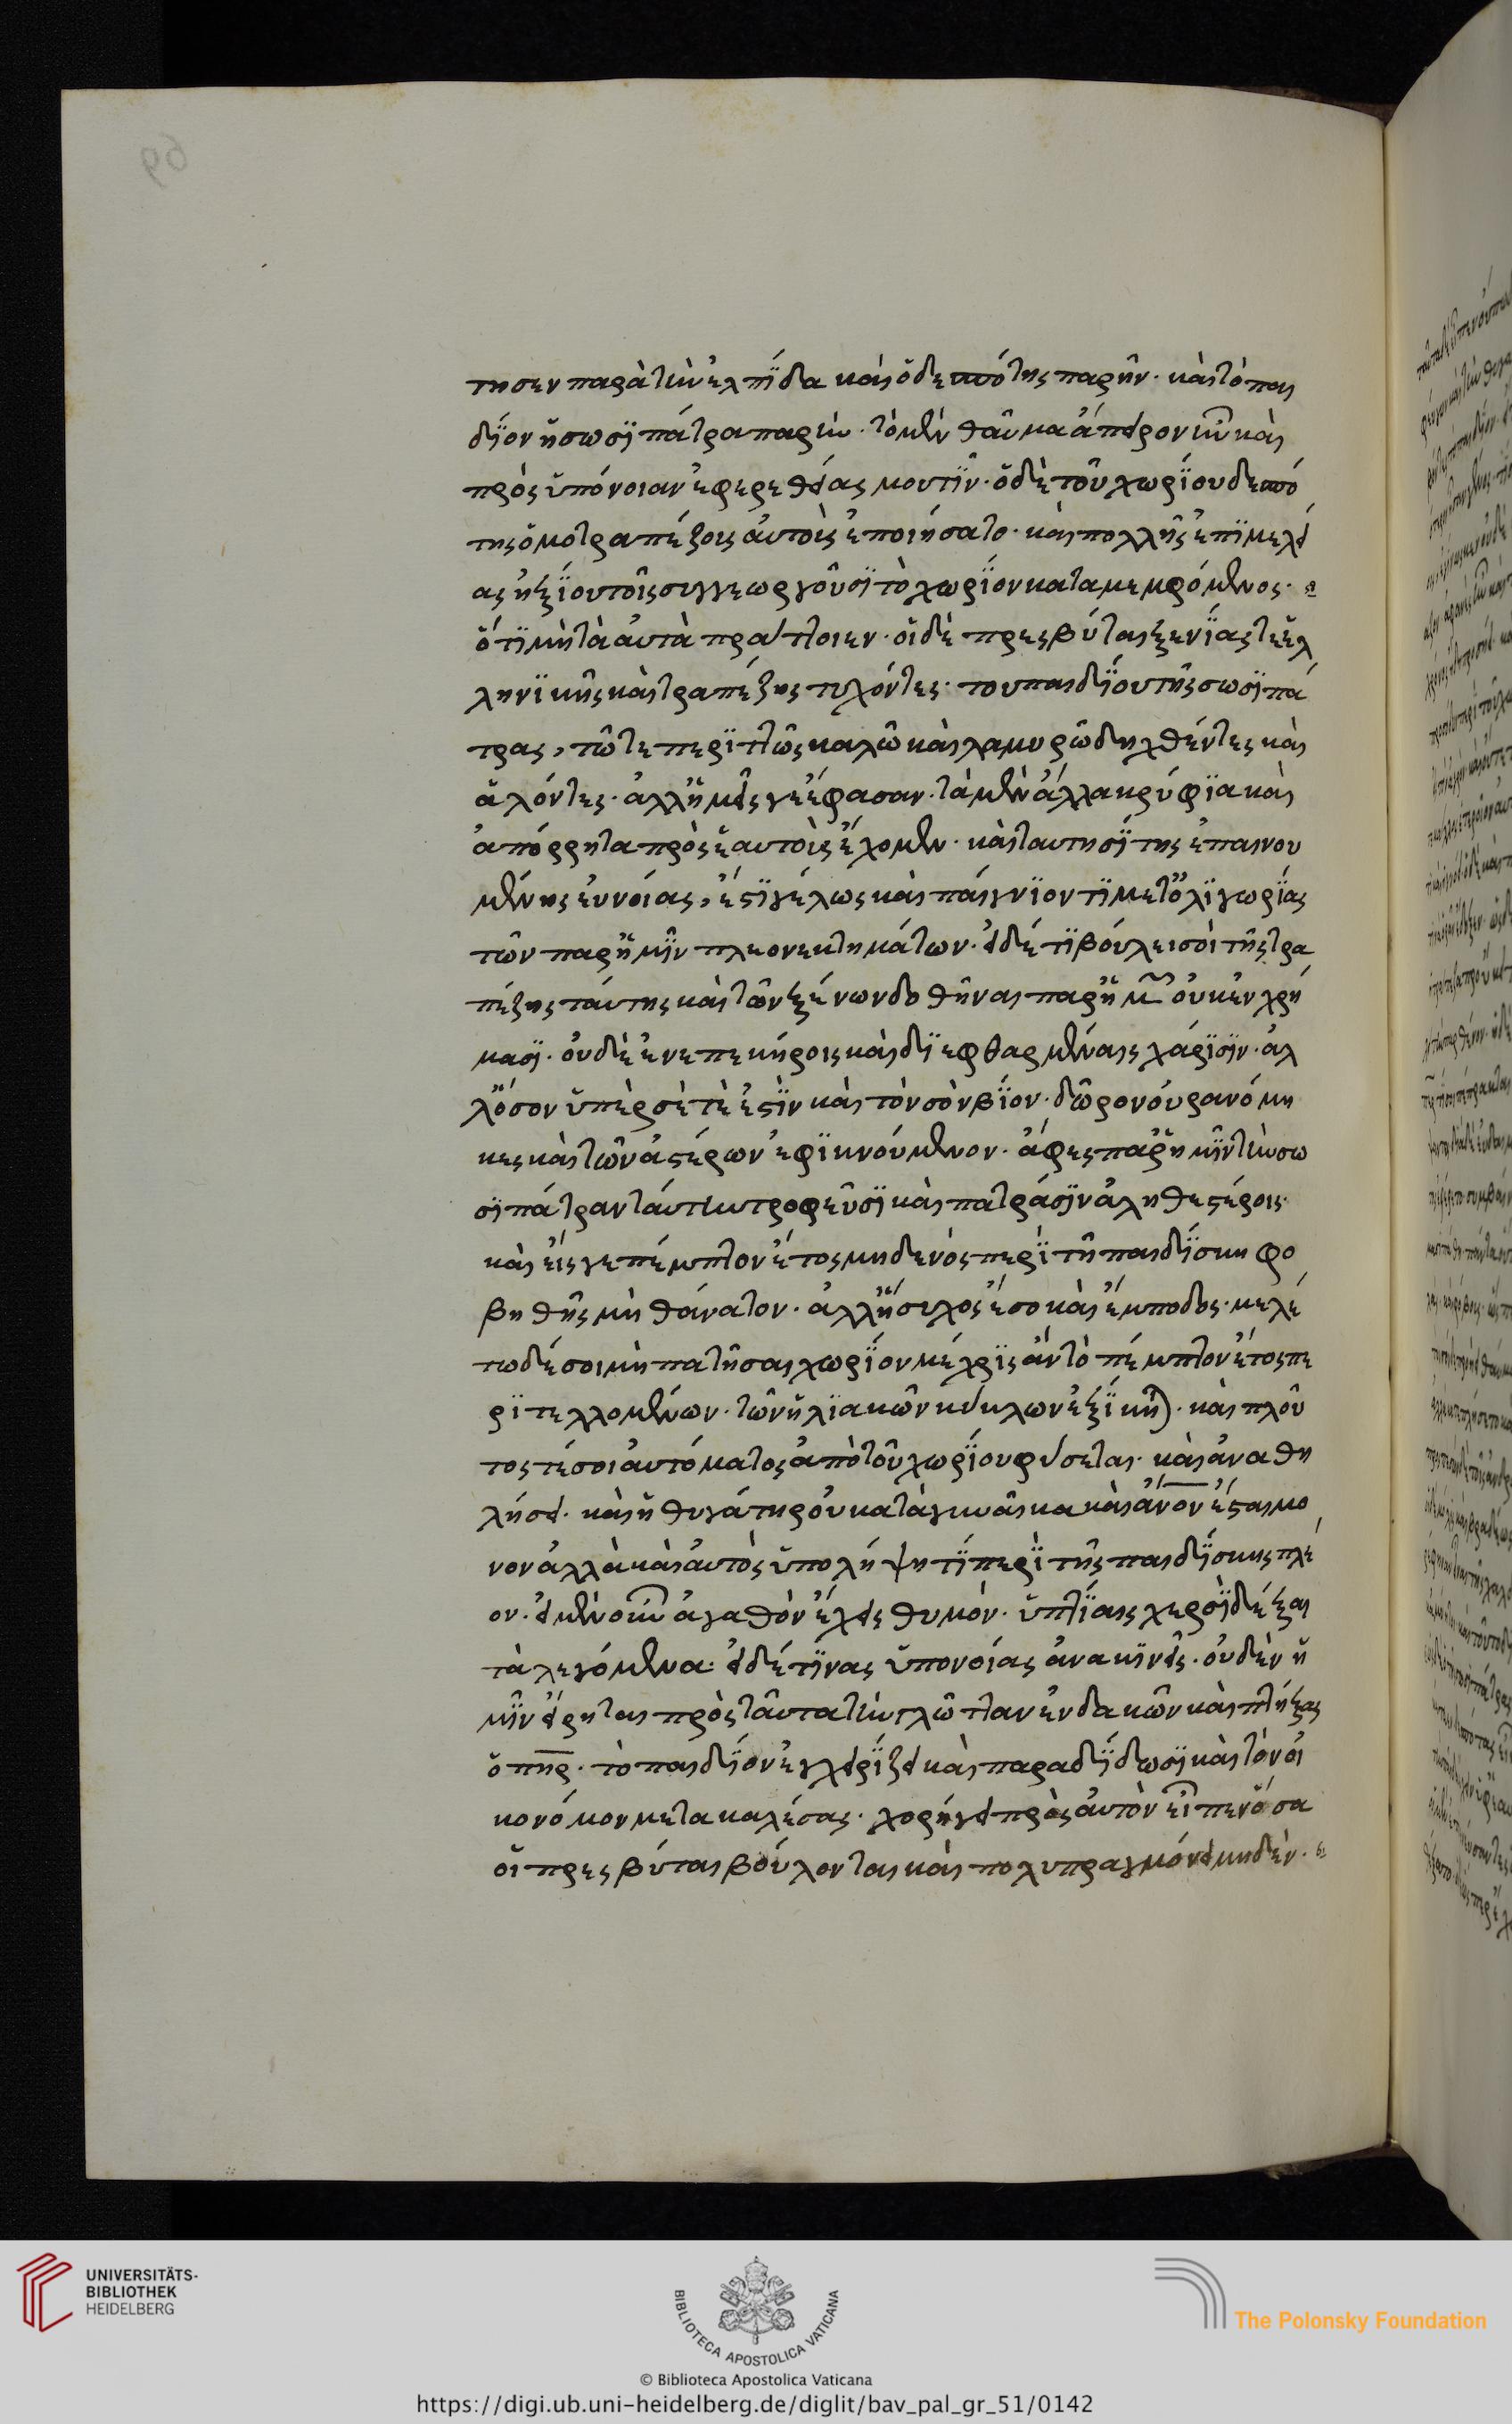 69
τησεν παρὰ τὴν ἐλπίδα καὶ ὁ δεσπότης παρῆν· καὶ τὸ παι
δίον ἡ σωσιπάτρα παρῆν· τὸ μὲν θαῦμα ἄπειρον ἦν καὶ
πρὸς ὑπόνοιαν ἔφερε θείας μουτιν· ὁ δὲ τοῦ χωρίου δεσπό
της ὁμοτραπέζοις αὐτοῖς ἐποιήσατο· καὶ πολλῆς ἐπιμελεί
ας ἠξίου τοῖς συγγεωργοῦσι τὸ χωρίον καταμεμφόμενος·
ὅτι μὴ τὰ αὐτὰ πράττοιεν· οἱ δὲ πρεσβύται ξενίας τε ἑλ
ληνικῆς καὶ τραπέζης τυχόντες· του παιδίου τῆς σωσιπά
τρας, τῶ τε περιττῶς καλῶ καὶ λαμυρῶ δηχθέντες καὶ
ἁλόντες· ἀλλ' ἡμεῖς γε ἔφασαν· τὰ μὲν ἄλλα κρύφια καὶ
ἀπόρρητα πρὸς ἑαυτοὺς ἔχομεν· καὶ ταυτησί της ἐπαινου
μένης εὐνοίας, ἐστι γέλως καὶ παίγνιον τι μετ' ὀλιγωρίας
τῶν παρ' ἡμῖν πλεονεκτημάτων· εἰ δέ τι βούλει σοὶ τῆς τρα
πέζης ταύτης καὶ τῶν ξένων δοθῆναι παρ' ἡμῶν οὐκ ἐν χρή
μασι· οὐδὲ ἐν ἐπικήροις καὶ διεφθαρμέναις χάρισιν· ἀλ
λ' ὅσον ὑπὲρ σέ τέ ἐστιν καὶ τὸν σὸν βίον· δῶρον οὐρανόμη
κες καὶ τῶν ἀστέρων ἐφικνούμενον· ἄφες παρ' ἡμῖν τὴν σω
σιπάτραν ταύτην τροφεῦσι καὶ πατράσιν ἀληθεστέροις·
καὶ εἴς γε πέμπτον ἔτος μηδενὸς περὶ τῆ παιδίσκη φο
βηθῆς μὴ θάνατον· ἀλλ' ἥσυχος ἔσο καὶ ἔμποδος· μελέ
τω δέ σοι μὴ πατῆσαι χωρίον μέχρις ἂν τὸ πέμπτον ἔτος πε
ριτελλομένων· τῶν ἡλιακῶν κύκλων ἐξίκηται· καὶ πλοῦ
τος τέ σοι αὐτόματος ἀπὸ τοῦ χωρίου φύσεται· καὶ ἀναθη
λήσει· καὶ ἡ θυγάτηρ οὐ κατὰ γυναῖκα καὶ ἄνον ἔσται μό
νον ἀλλὰ καὶ αὐτὸς ὑπολήψη τί περὶ τῆς παιδίσκης πλέ
ον· εἰ μὲν οὖν ἀγαθὸν ἔχεις θυμὸν· ὑπτίαις χερσὶ δέξαι
τὰ λεγόμενα· εἰ δέ τινας ὑπονοίας ἀνακινεῖς· οὐδὲν ἡ
μῖν εἴρηται πρὸς ταῦτα τὴν γλῶτταν ἐνδακῶν καὶ πτήξας
ὁ πηρ· τὸ παιδίον ἐγχειρίζει καὶ παραδίδωσι καὶ τὸν οἰ
κονόμον μετακαλέσας· χορήγει πρὸς αὐτὸν εἶπεν ὅσα
οἱ πρεσβύται βούλονται καὶ πολυπραγμόνει μηδέν·
UNIVERSITÄTS-
BIBLIOTHEK
HEIDELBERG
BIBLIOTECA APOSTOLICA VATICANA
The Polonsky Foundation
© Biblioteca Apostolica Vaticana
https://digi.ub.uni-heidelberg.de/diglit/bav_pal_gr_51/0142